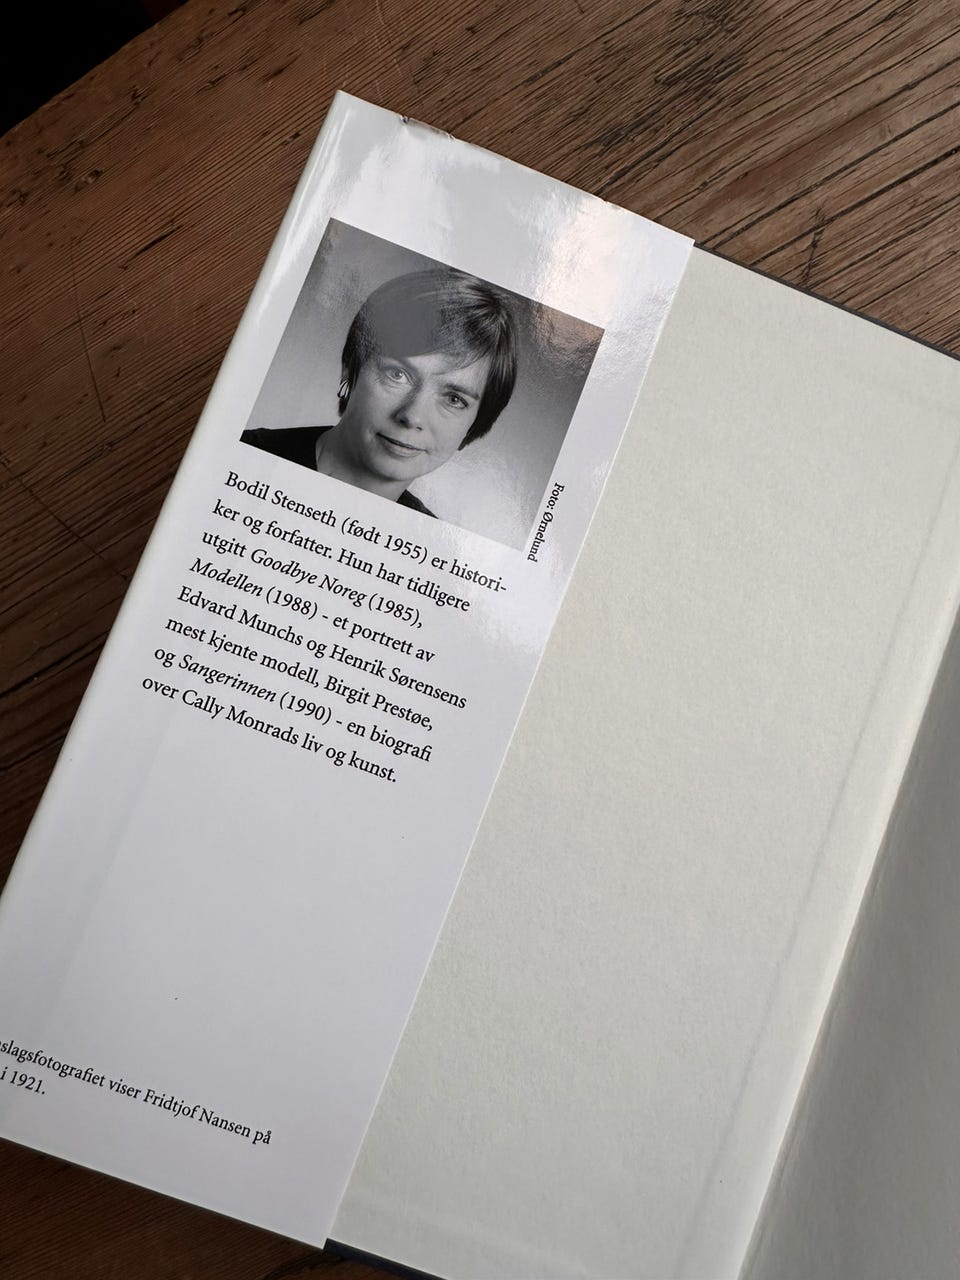 Foto: Ørnelund
Bodil Stenseth (født 1955) er histori-
ker og forfatter. Hun har tidligere
utgitt Goodbye Noreg (1985),
Modellen (1988) - et portrett av
Edvard Munchs og Henrik Sørensens
mest kjente modell, Birgit Prestøe,
og Sangerinnen (1990) - en biografi
over Cally Monrads liv og kunst.
viser Fridtjof Nansen på
i 1921.